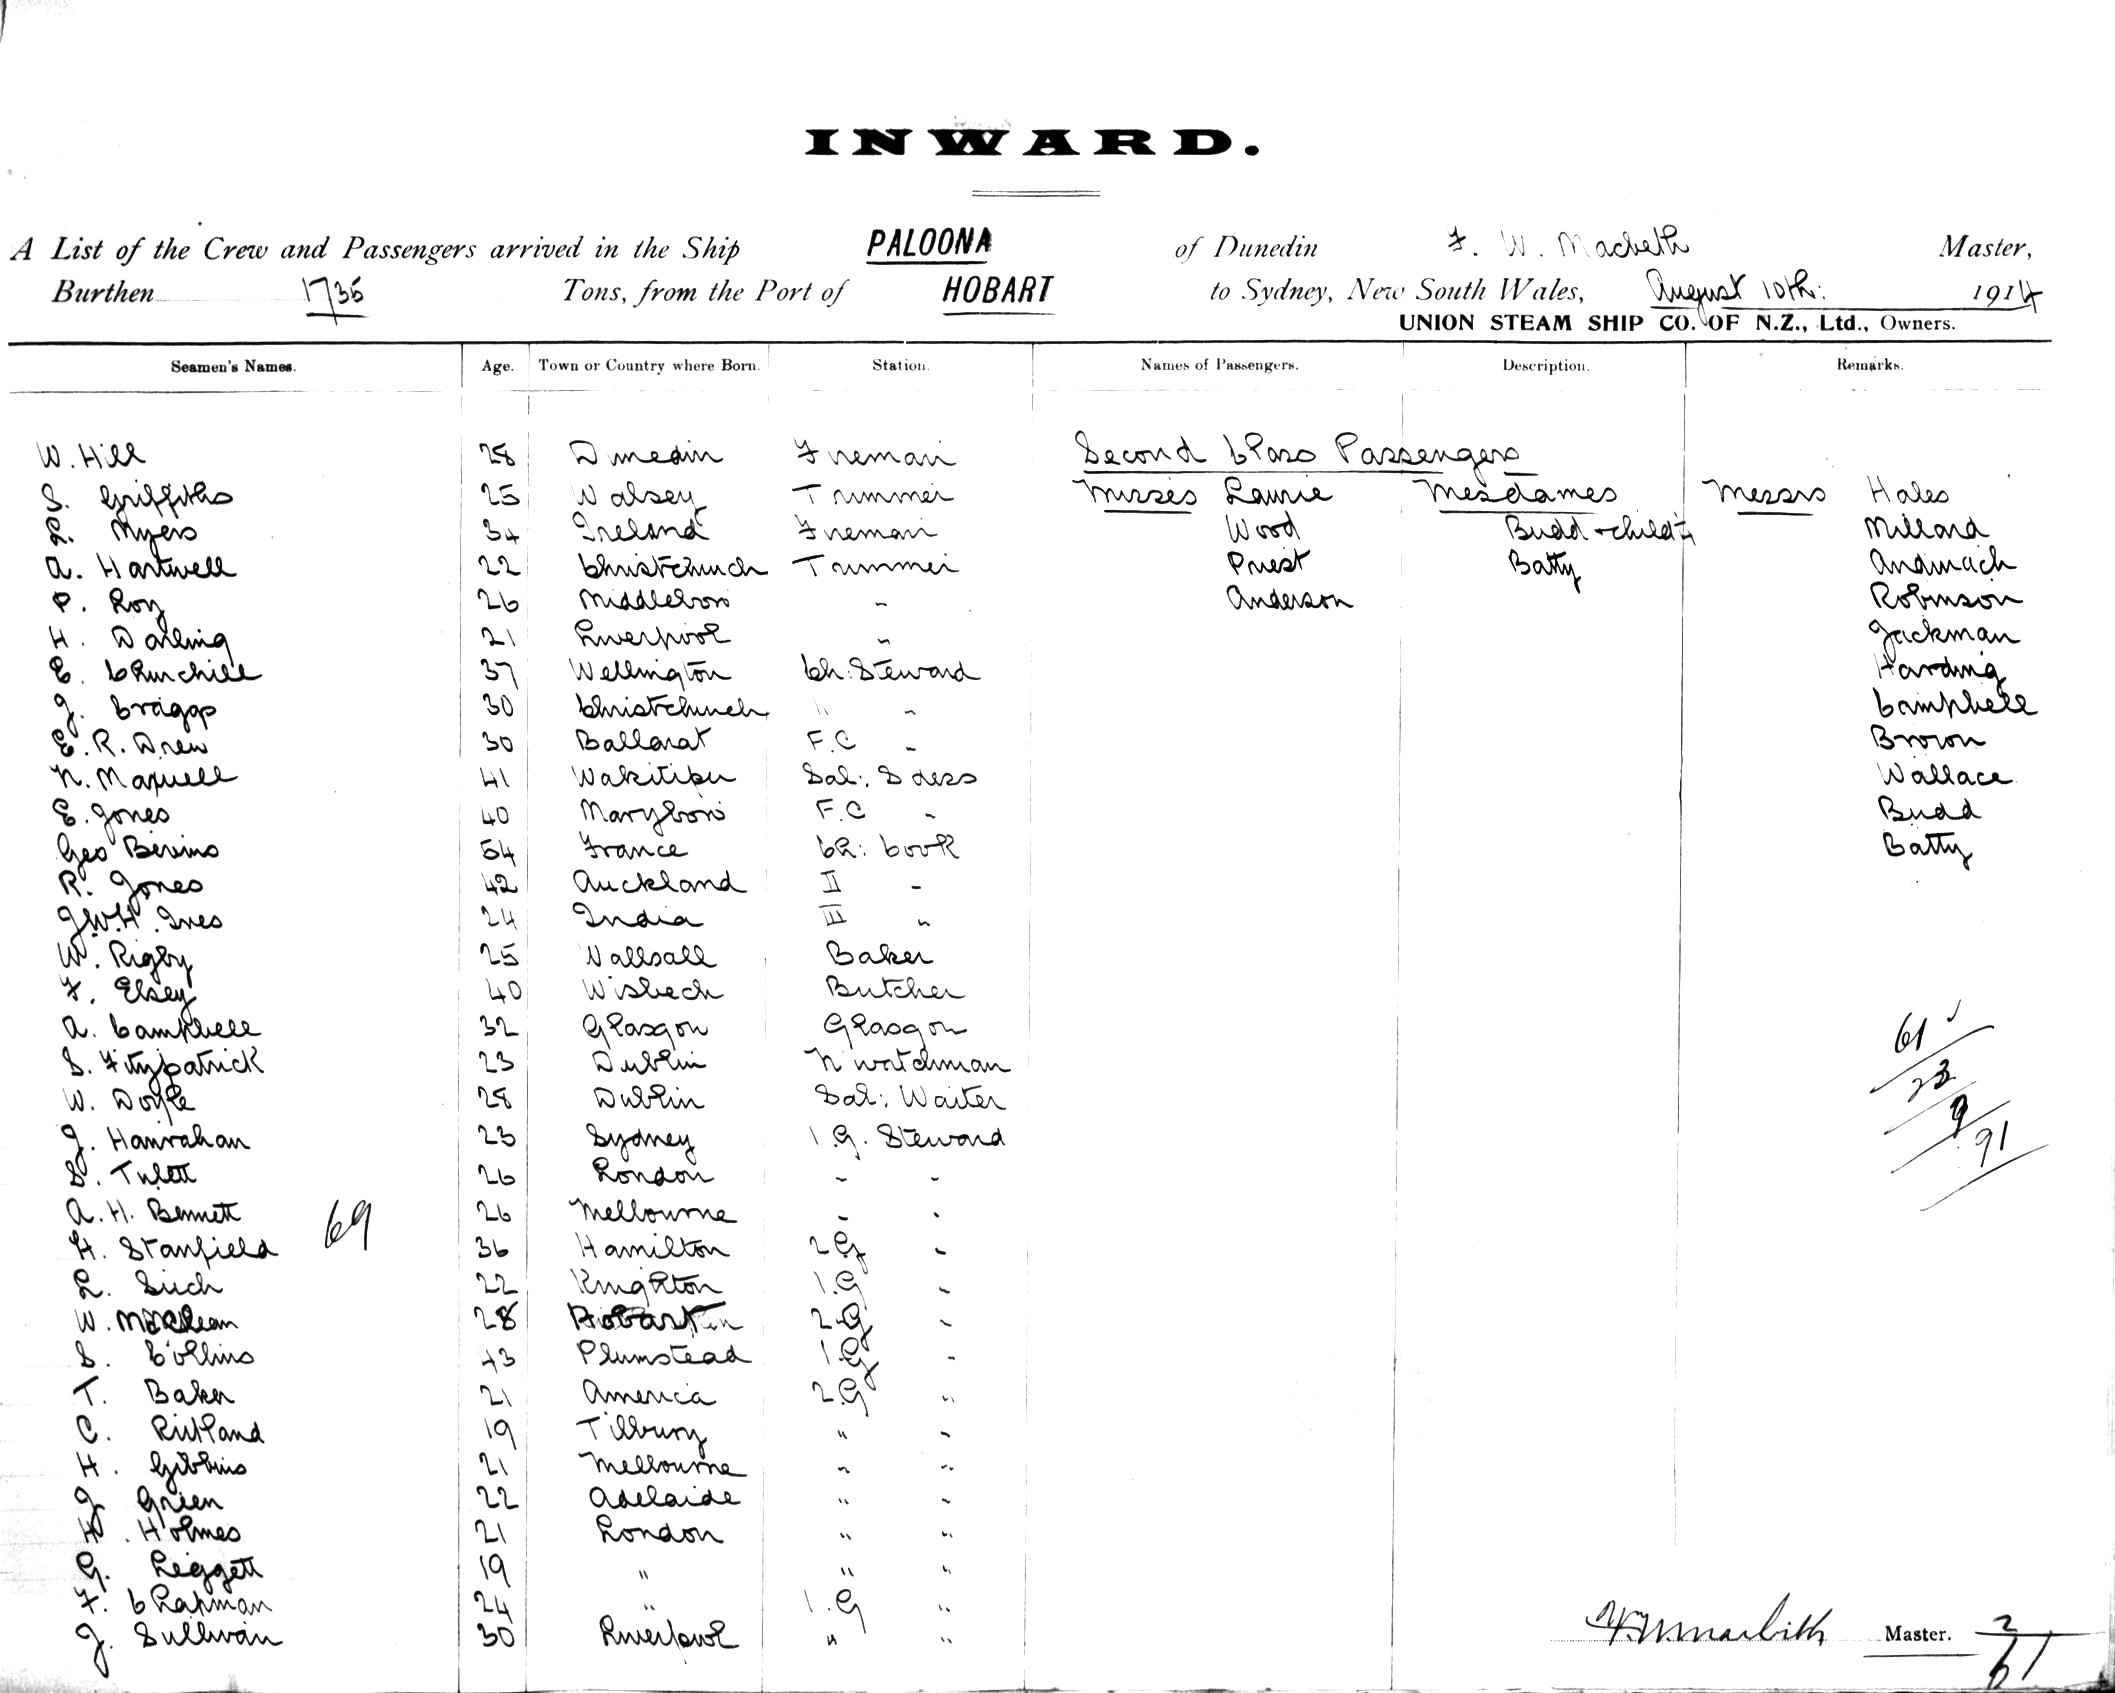 INWARD.
A List of the Crew and Passengers arrived in the Ship PALOONA of Dunedin F. W. Macbeth Master,
Burthen 1735 Tons, from the Port of HOBART to Sydney, New South Wales, August 10th: 1914
UNION STEAM SHIP CO. OF N.Z., Ltd., Owners.
Seamen's Names. Age. Town or Country where Born. Station. Names of Passengers. Description. Remarks.
W. Hill 28 Dunedin Fireman Second Class Passengers
S. Griffiths 25 Walsey Trimmer Misses Laurie Mesdames Messrs Hales
L. Myers 34 Ireland Fireman Wood Budd + child Millard
A. Hartwell 22 Christchurch Trimmer Priest Batty Andrnach
P. Roy 26 Middleboro " Anderson Robinson
H. Darling 21 Liverpool " Jackman
E. Churchill 37 Wellington Ch: Steward Harding
J. Craggs 30 Christchurch " " Campbell
E. R. Drew 30 Ballarat F.C " Brown
N. Maxwell 41 Wakitipu Sal: S dess Wallace
E. Jones 40 Maryboro F.C " Budd
Geo Bevins 54 France Ch: Cook Batty
R. Jones 42 Auckland II "
J.W.H. Ives 24 India III "
W. Rigby 25 Wallsall Baker
F. Elsey 40 Wisbech Butcher
A. Campbell 32 Glasgow Glasgow
S. Fitzpatrick 23 Dublin N watchman
W. Doyle 28 Dublin Sal: Waiter
J. Hanrahan 23 Sydney 1.G. Steward
S. Tulett 26 London " "
A. H. Bennett 26 Melbourne " "
H. Stanfield 36 Hamilton 2 G "
L. Such 22 Knighton 1.G "
W. McLean 28 Hobart 2.G "
S. Collins 43 Plumstead 1.G "
T. Baker 21 America 2.G "
C. Rutland 19 Tilbury " "
H. Gibbins 21 Melbourne " "
J Green 22 Adelaide " "
H. Holmes 21 London " "
G. Leggett 19 " " "
F. Chapman 24 " 1.G "
J. Sullivan 30 Liverpool " "
69
61
23
9
91
F.W. Macbeth Master.
2
61